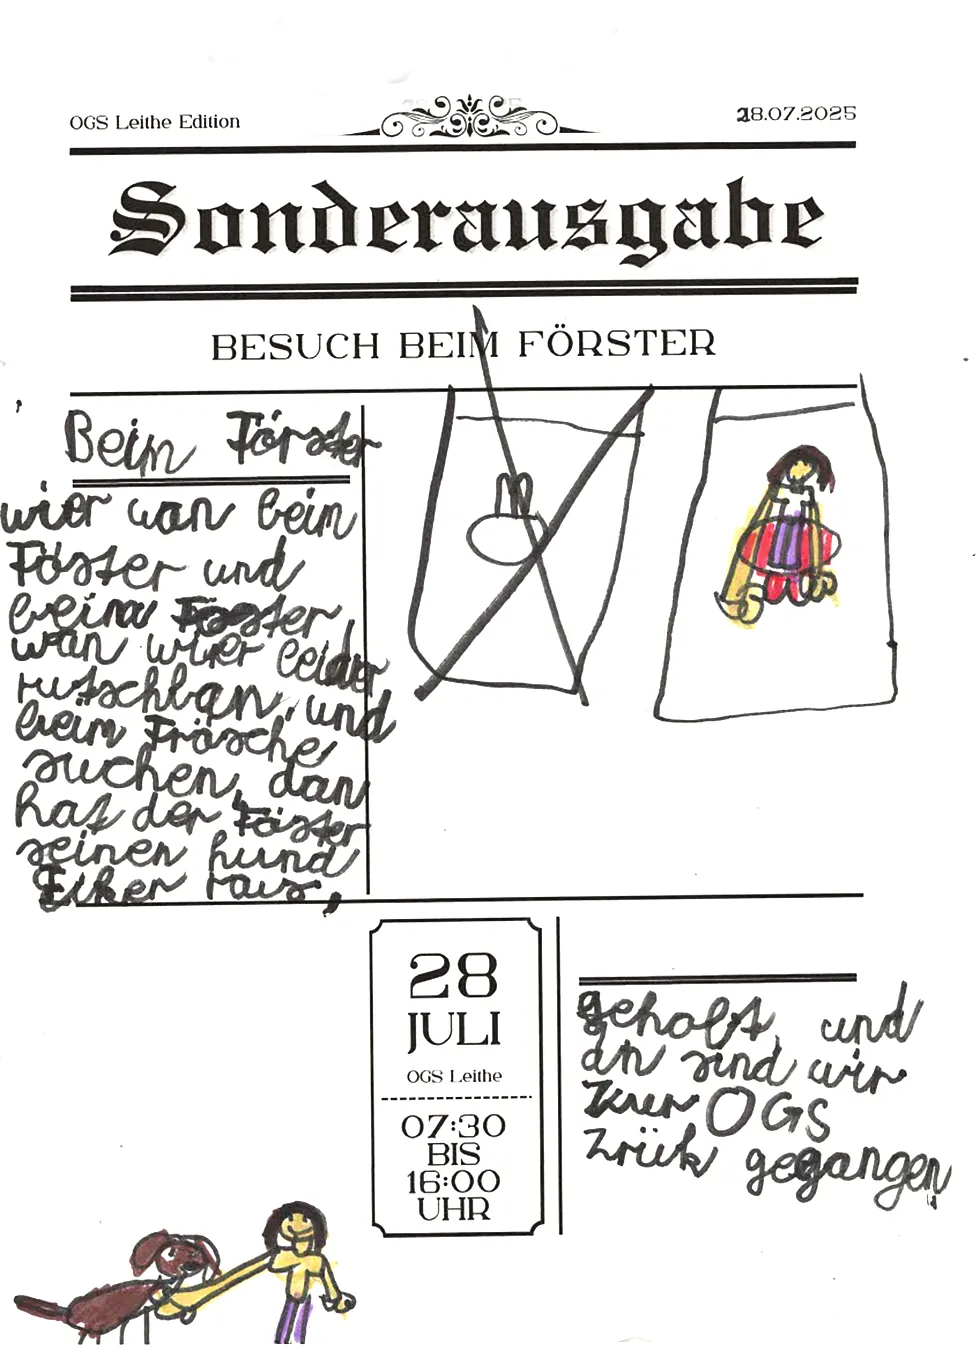 OGS Leithe Edition
28.07.2025
Sonderausgabe
BESUCH BEIM FÖRSTER
Beim Förster
wier wan beim
Föster und
beim Föster
wan wier leider
rutschban, und
beim Frösche
suchen, dan
hat der Föster
seinen hund
Eiker raus,
28
JULI
OGS Leithe
07:30
BIS
16:00
UHR
geholt, und
dn sind wir
zur OGS
zrük gegangen